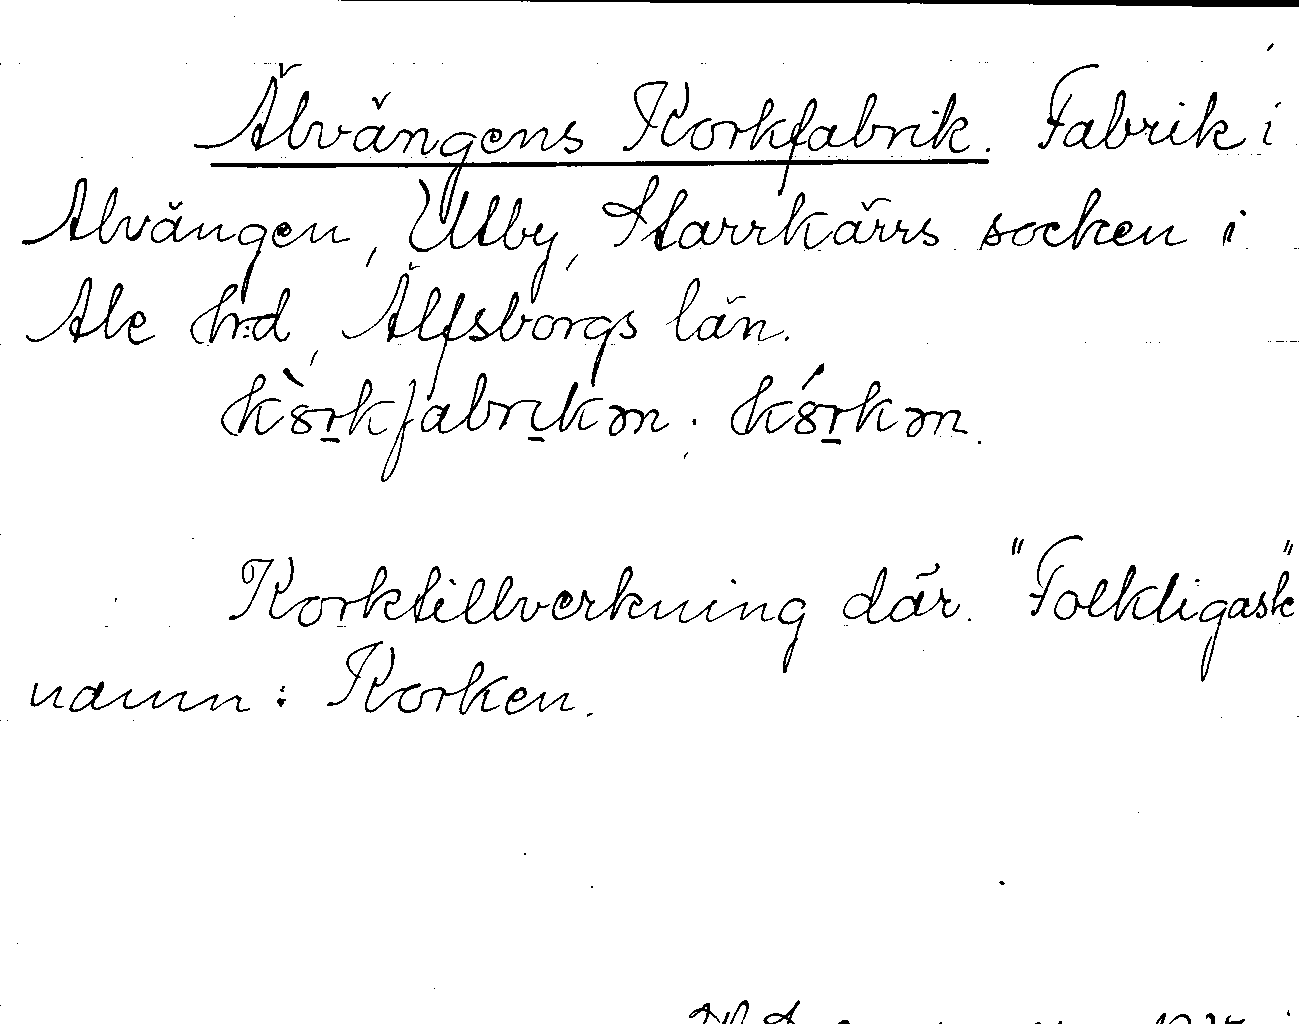 Älvängens Korkfabrik. Fabrik i
Alvängen, Utby, Starrkärrs socken i
Ale hrd, Älfsborgs län.

Korktillverkning där. "Folkligaste"
namn: Korken.